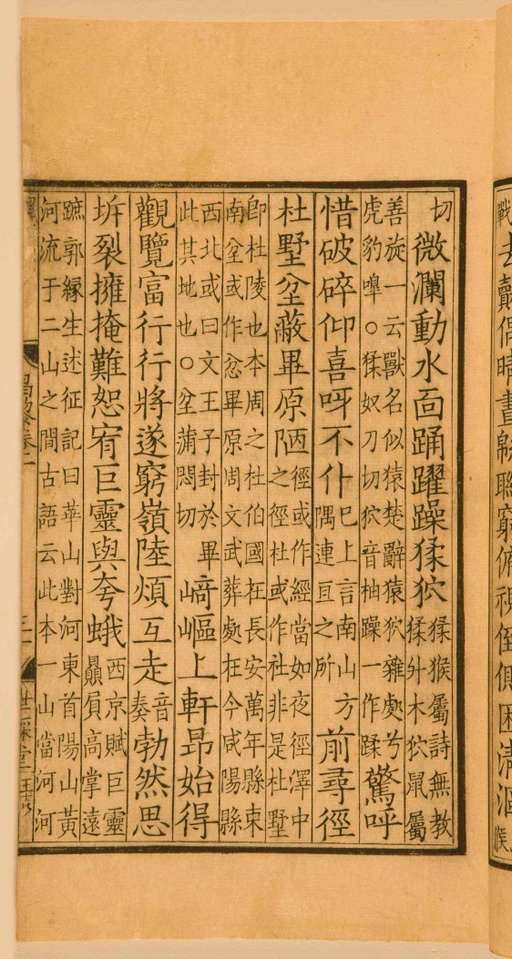 切微瀾動水面踊躍躁猱狖猱猴屬詩無教
猱升木狖鼠屬
善旋一云獸名似猿楚辭猿狖雜處兮
虎豹嘷○猱奴刀切狖音柚躁一作蹂驚呼
惜破碎仰喜呀不仆巳上言南山方
隅連亘之所前尋徑
杜墅坌蔽畢原陋徑或作經當如夜徑澤中
之徑杜或作社非是杜墅
卽杜陵也本周之杜伯國在長安萬年縣東
南坌或作忿畢原周文武葬處在今咸陽縣
西北或曰文王子封於畢
此其地也○坌蒲悶切崎嶇上軒昂始得
觀覽富行行將遂窮嶺陸煩互走音奏勃然思
坼裂擁掩難恕宥巨靈與夸蛾西京賦巨靈
贔屓高掌遠
蹠郭緣生述征記曰華山對河東首陽山黃
河流于二山之間古語云此本一山當河河